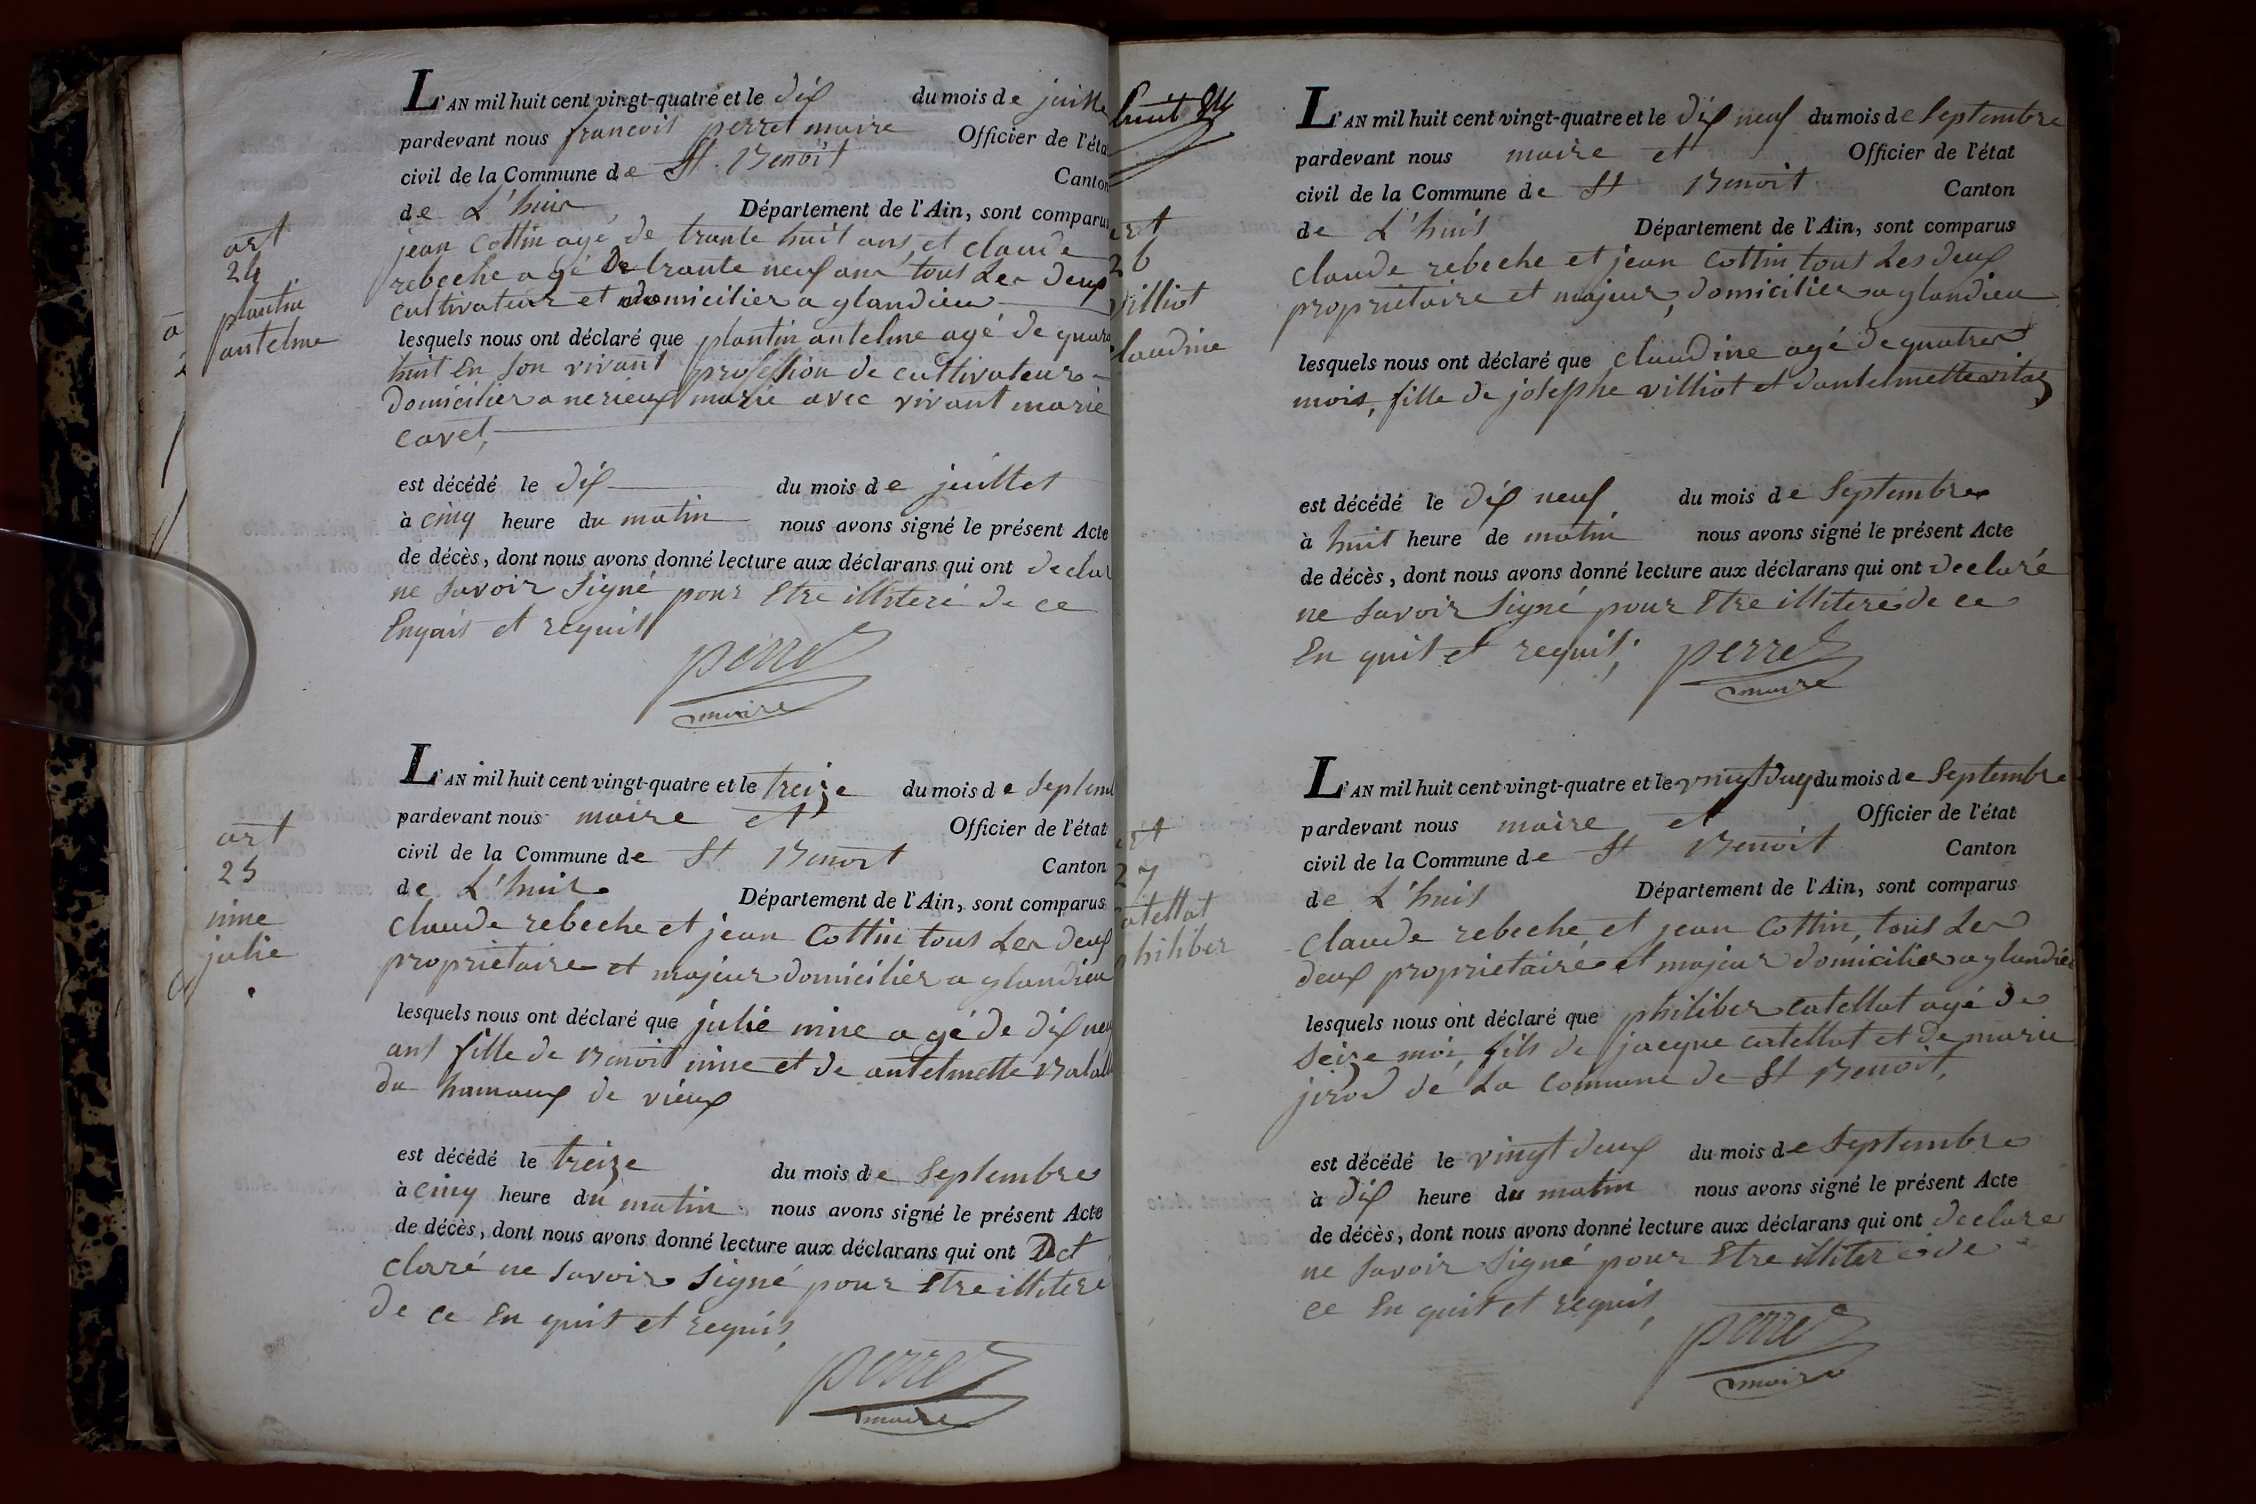 art
24
plantin
antelme
L'AN mil huit cent vingt-quatre et le dix du mois de juille
pardevant nous francois perret maire Officier de l'éta
civil de la Commune de St Benoit Canton
de L'huis Département de l'Ain, sont comparus
jean cottin agé de trante huit ans et claude
rebeche agé De trante neuf ans tous Les deux
cultivateur et domicilier a glandieu
lesquels nous ont déclaré que plantin antelme agé de quara
huit En son vivant profession de cultivateur
domicilier a nerieux marie avec vivant marie
cavet,
est décédé le dix du mois de juillet
à cinq heure du matin nous avons signé le présent Acte
de décès, dont nous avons donné lecture aux déclarans qui ont declar
ne savoir signé pour Etre illiteré de ce
Enquis et requis
perret
maire
art
25
nine
julie
L'AN mil huit cent vingt-quatre et le treize du mois de Septem
pardevant nous maire et Officier de l'état
civil de la Commune de St Benoit Canton
de L'huis Département de l'Ain, sont comparus
claude rebeche et jean Cottin tous Les deux
proprietaire et majeur domicilier a glandieu
lesquels nous ont déclaré que julie nine agé de dix neu
ans fille de Benoit nine et de antelmette
du hamaux de vieux
est décédé le treize du mois de Septembre
à cinq heure du matin nous avons signé le présent Acte
de décès, dont nous avons donné lecture aux déclarans qui ont
claré ne savoir signé pour Etre illiteré
de ce En quis et requis,
perret
maire
huit
art
26
villiot
laudine
L'AN mil huit cent vingt-quatre et le dix neuf du mois de Septembre
pardevant nous maire et Officier de l'état
civil de la Commune de St Benoit Canton
de L'huis Département de l'Ain, sont comparus
claude rebeche et jean cottin tous Les deux
proprietaire et majeur, domicilier a glandieu
lesquels nous ont déclaré que claudine agé de quatre
mois, fille de josephe villiot et dantelmette
est décédé le dix neuf du mois de Septembre
à huit heure de matin nous avons signé le présent Acte
de décès, dont nous avons donné lecture aux déclarans qui ont declaré
ne savoir signé pour Etre illiteré de ce
En quis et requis;
perret
maire
art
27
catellat
philiber
L'AN mil huit cent vingt-quatre et le vingt deux du mois de Septembre
pardevant nous maire et Officier de l'état
civil de la Commune de St Benoit Canton
de L'huis Département de l'Ain, sont comparus
claude rebeche et jean cottin, tous Les
deux proprietaire et majeur domicilier a glandieu
lesquels nous ont déclaré que philiber catellat agé de
seize moi, fils de jacque catellat et de marie
jirod de La Commune de St Benoit,
est décédé le vingt deux du mois de Septembre
à dix heure du matin nous avons signé le présent Acte
de décès, dont nous avons donné lecture aux déclarans qui ont declaré
ne savoir signé pour Etre illiteré de
ce En quis et requis,
perret
maire